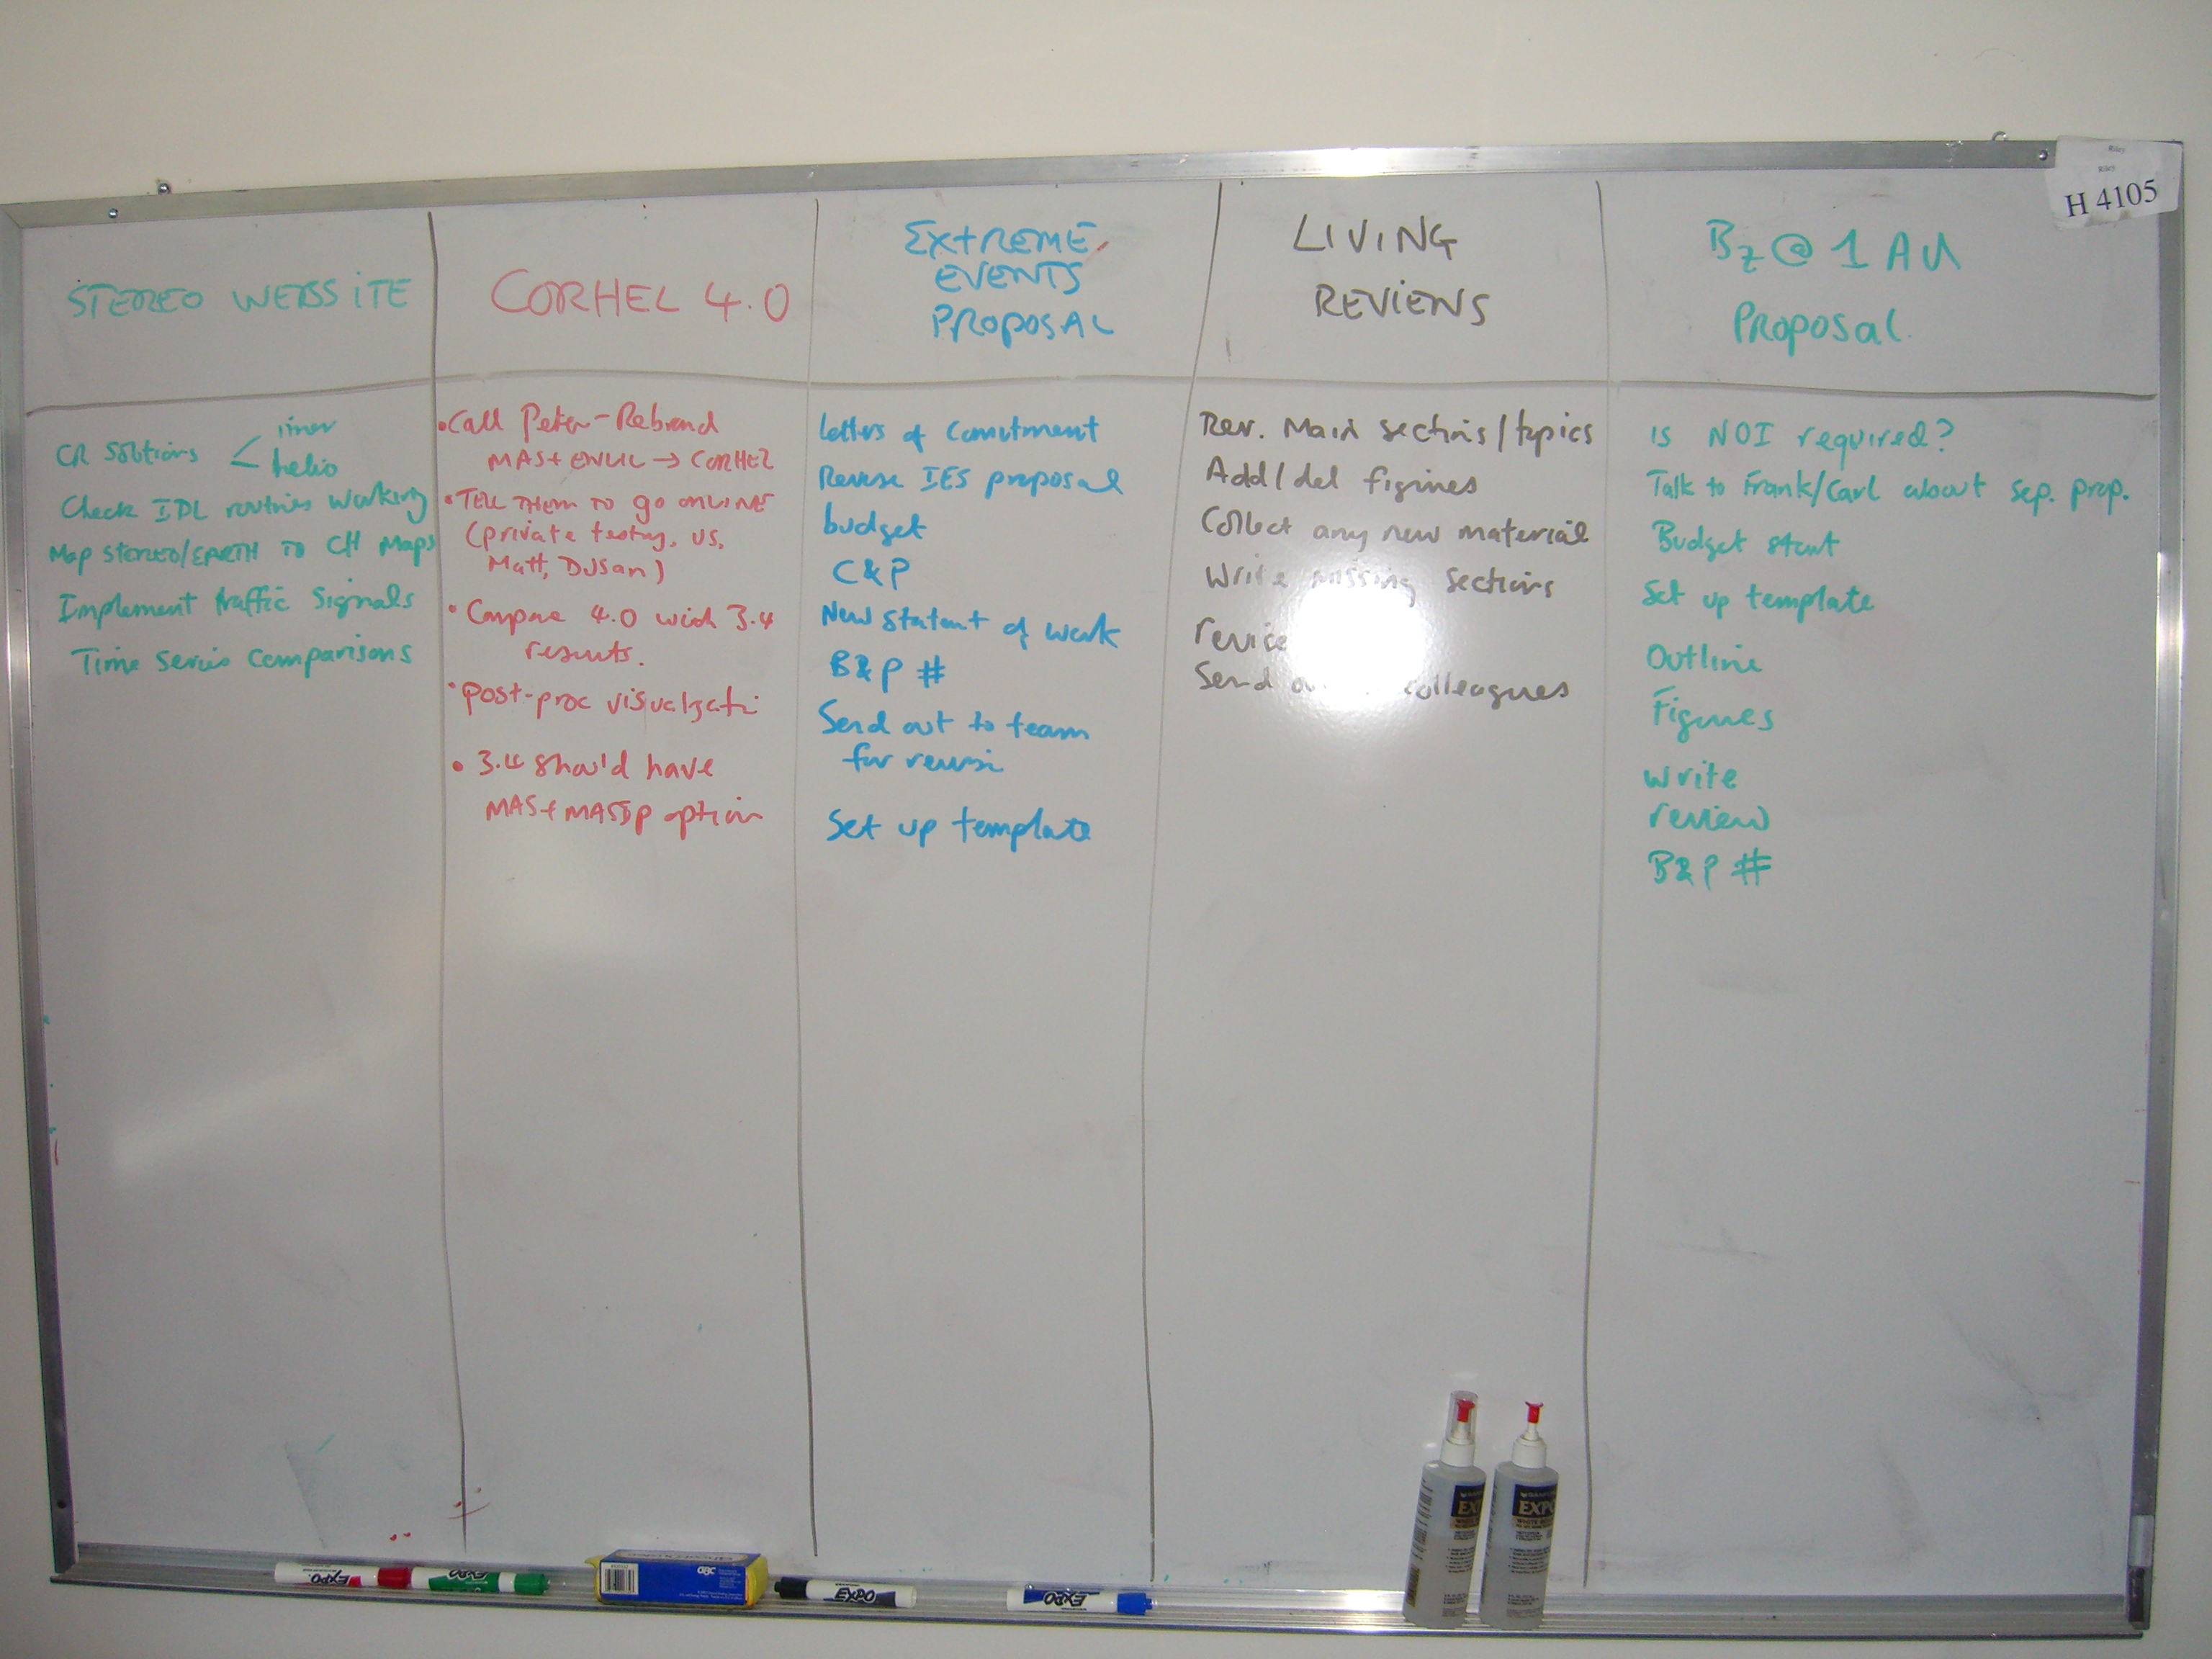 H 4105
STEREO WEBSITE
CR Solutions < inner
helio
Check IDL routines working
Map STEREO/EARTH TO CH Maps
Implement traffic Signals
Time Series Comparisons
CORHEL 4.0
• Call Peter - Rebrand
MAS + ENLIL → CORHEL
• TELL THEM TO go ONLINE
(private testing, US,
Matt, DUSan)
• Compare 4.0 with 3.4
results.
• post-proc visualizati
• 3.4 should have
MAS + MASDP option
EXTREME
EVENTS
PROPOSAL
letters of Comitment
Reverse IES proposal
budget
C&P
New Statent of work
B&P #
Send out to team
for revisi
Set up template
LIVING
REVIEWS
Rev. Main sections/topics
Add/del figures
Collect any new material
Write missing sections
Send colleagues
Bz @ 1 AU
PROPOSAL.
is NOI required?
Talk to Frank/Carl about sep. prop.
Budget start
Set up template
Outline
Figures
write
review
B&P #
EXPO
EXPO
ABC
EXPO
EXPO
EXPO